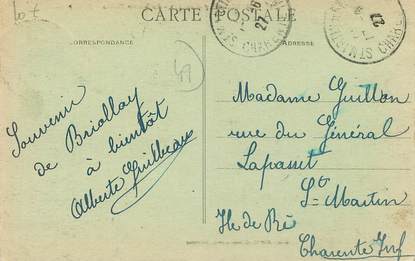 Lot
CARTE POSTALE
CORRESPONDANCE
ADRESSE
49
Souvenir
de Briollay
à bientôt
Alberte Guilbeau
Madame Guillon
rue du Général
Lapasset
St Martin
Ile de Ré
Charente Inf